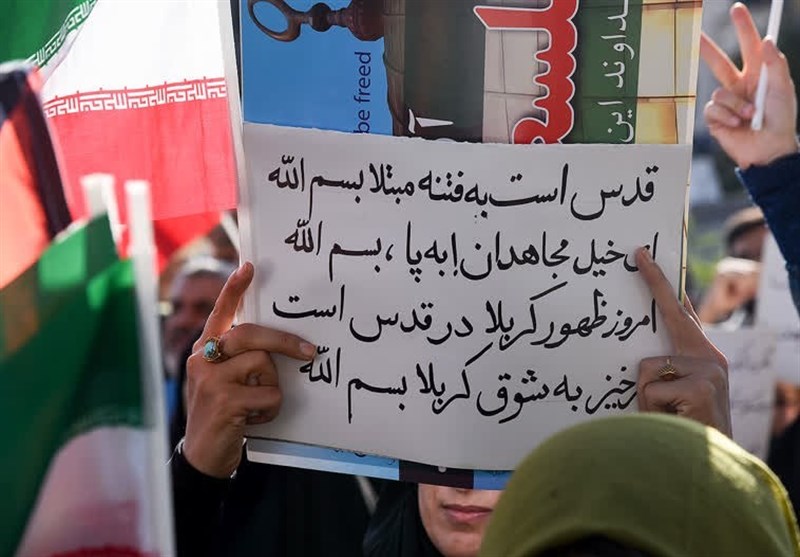 be freed
این
قدس است به فتنه مبتلا بسم الله
ای خیل مجاهدان! به پا، بسم الله
امروز ظهور کربلا در قدس است
برخیز به شوق کربلا بسم الله